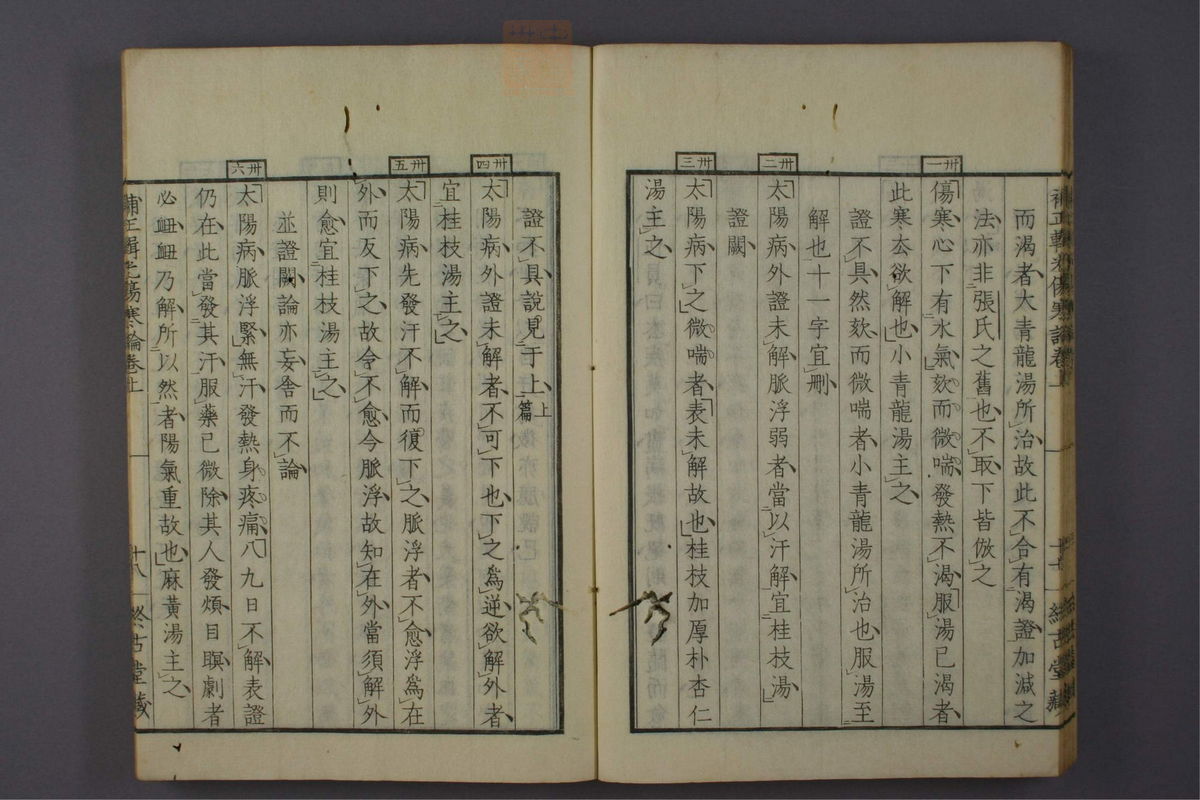 補正輯光傷寒論卷上
而渴者大青龍湯所治故此不合有渴證加減之
法亦非張氏之舊也不取下皆倣之
卅一
傷寒心下有水氣欬而微喘發熱不渴服湯已渴者
此寒去欲解也小青龍湯主之
證不具然欬而微喘者小青龍湯所治也服湯至
解也十一字宜刪
卅二
太陽病外證未解脈浮弱者當以汗解宜桂枝湯
證闕
卅三
太陽病下之微喘者表未解故也桂枝加厚朴杏仁
湯主之
證不具說見于上上篇
卅四
太陽病外證未解者不可下也下之爲逆欲解外者
宜桂枝湯主之
卅五
太陽病先發汗不解而復下之脈浮者不愈浮爲在
外而反下之故令不愈今脈浮故知在外當須解外
則愈宜桂枝湯主之
並證闕論亦妄舍而不論
卅六
太陽病脈浮緊無汗發熱身疼痛八九日不解表證
仍在此當發其汗服藥已微除其人發煩目瞑劇者
必衄衄乃解所以然者陽氣重故也麻黃湯主之
傷寒論卷上
十八